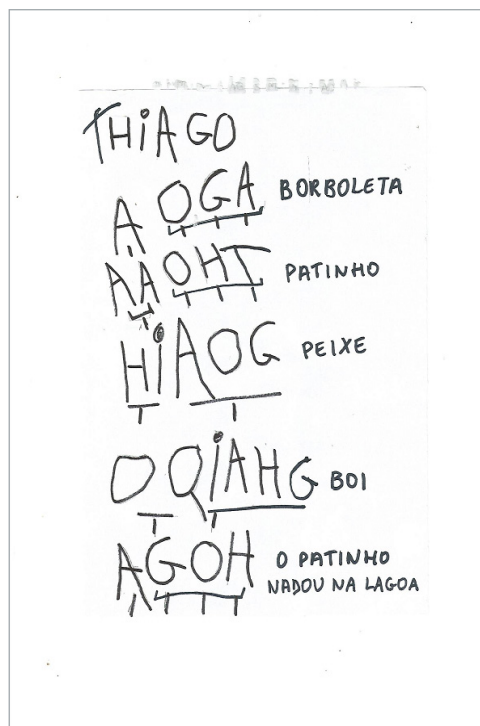 THiAGO
A OGA BORBOLETA
AA OHT PATINHO
HiAOG PEIXE
O QiAHG BOI
AGOH O PATINHO
NADOU NA LAGOA